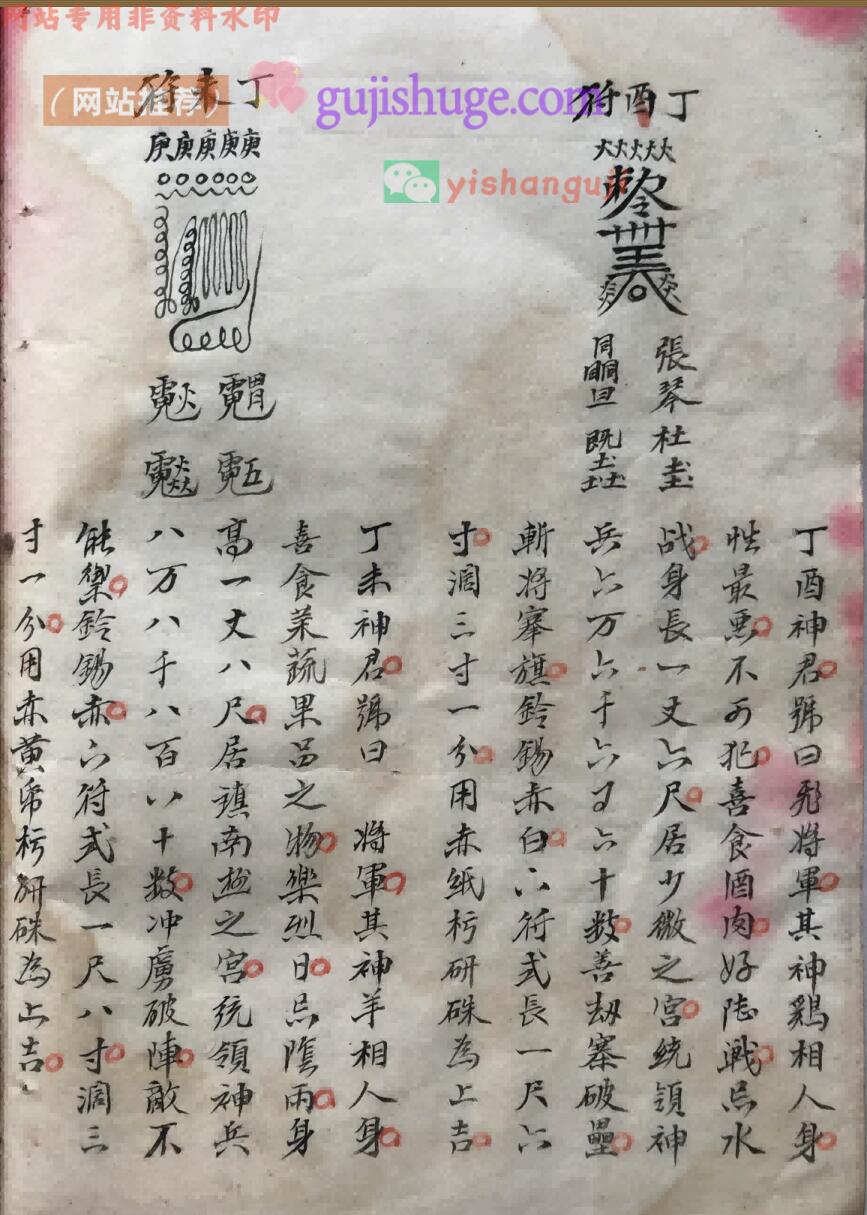 网站专用非资料水印
(网站推荐)
gujishuge.com
yishanguji
丁酉符
火火火火火
張琴杜
丁酉神君號曰飛將軍其神鷄相人身
性最惡不可犯喜食酒肉好陆戰忌水
战身長一丈六尺居少微之宮統領神
兵六万六千六百六十数善劫寨破壘
斬将搴旗鈴錫赤白六符式長一尺六
寸濶三寸一分用赤紙朽研硃為上吉
丁未符
庚庚庚庚庚
丁未神君號曰 将軍其神羊相人身
喜食菜蔬果品之物樂烈日忌隂雨身
高一丈八尺居鎮南之宮统領神兵
八万八千八百八十数冲虜破陣敵不
能禦鈴錫赤六符式長一尺八寸濶三
寸一分用赤黄帋朽研硃為上吉